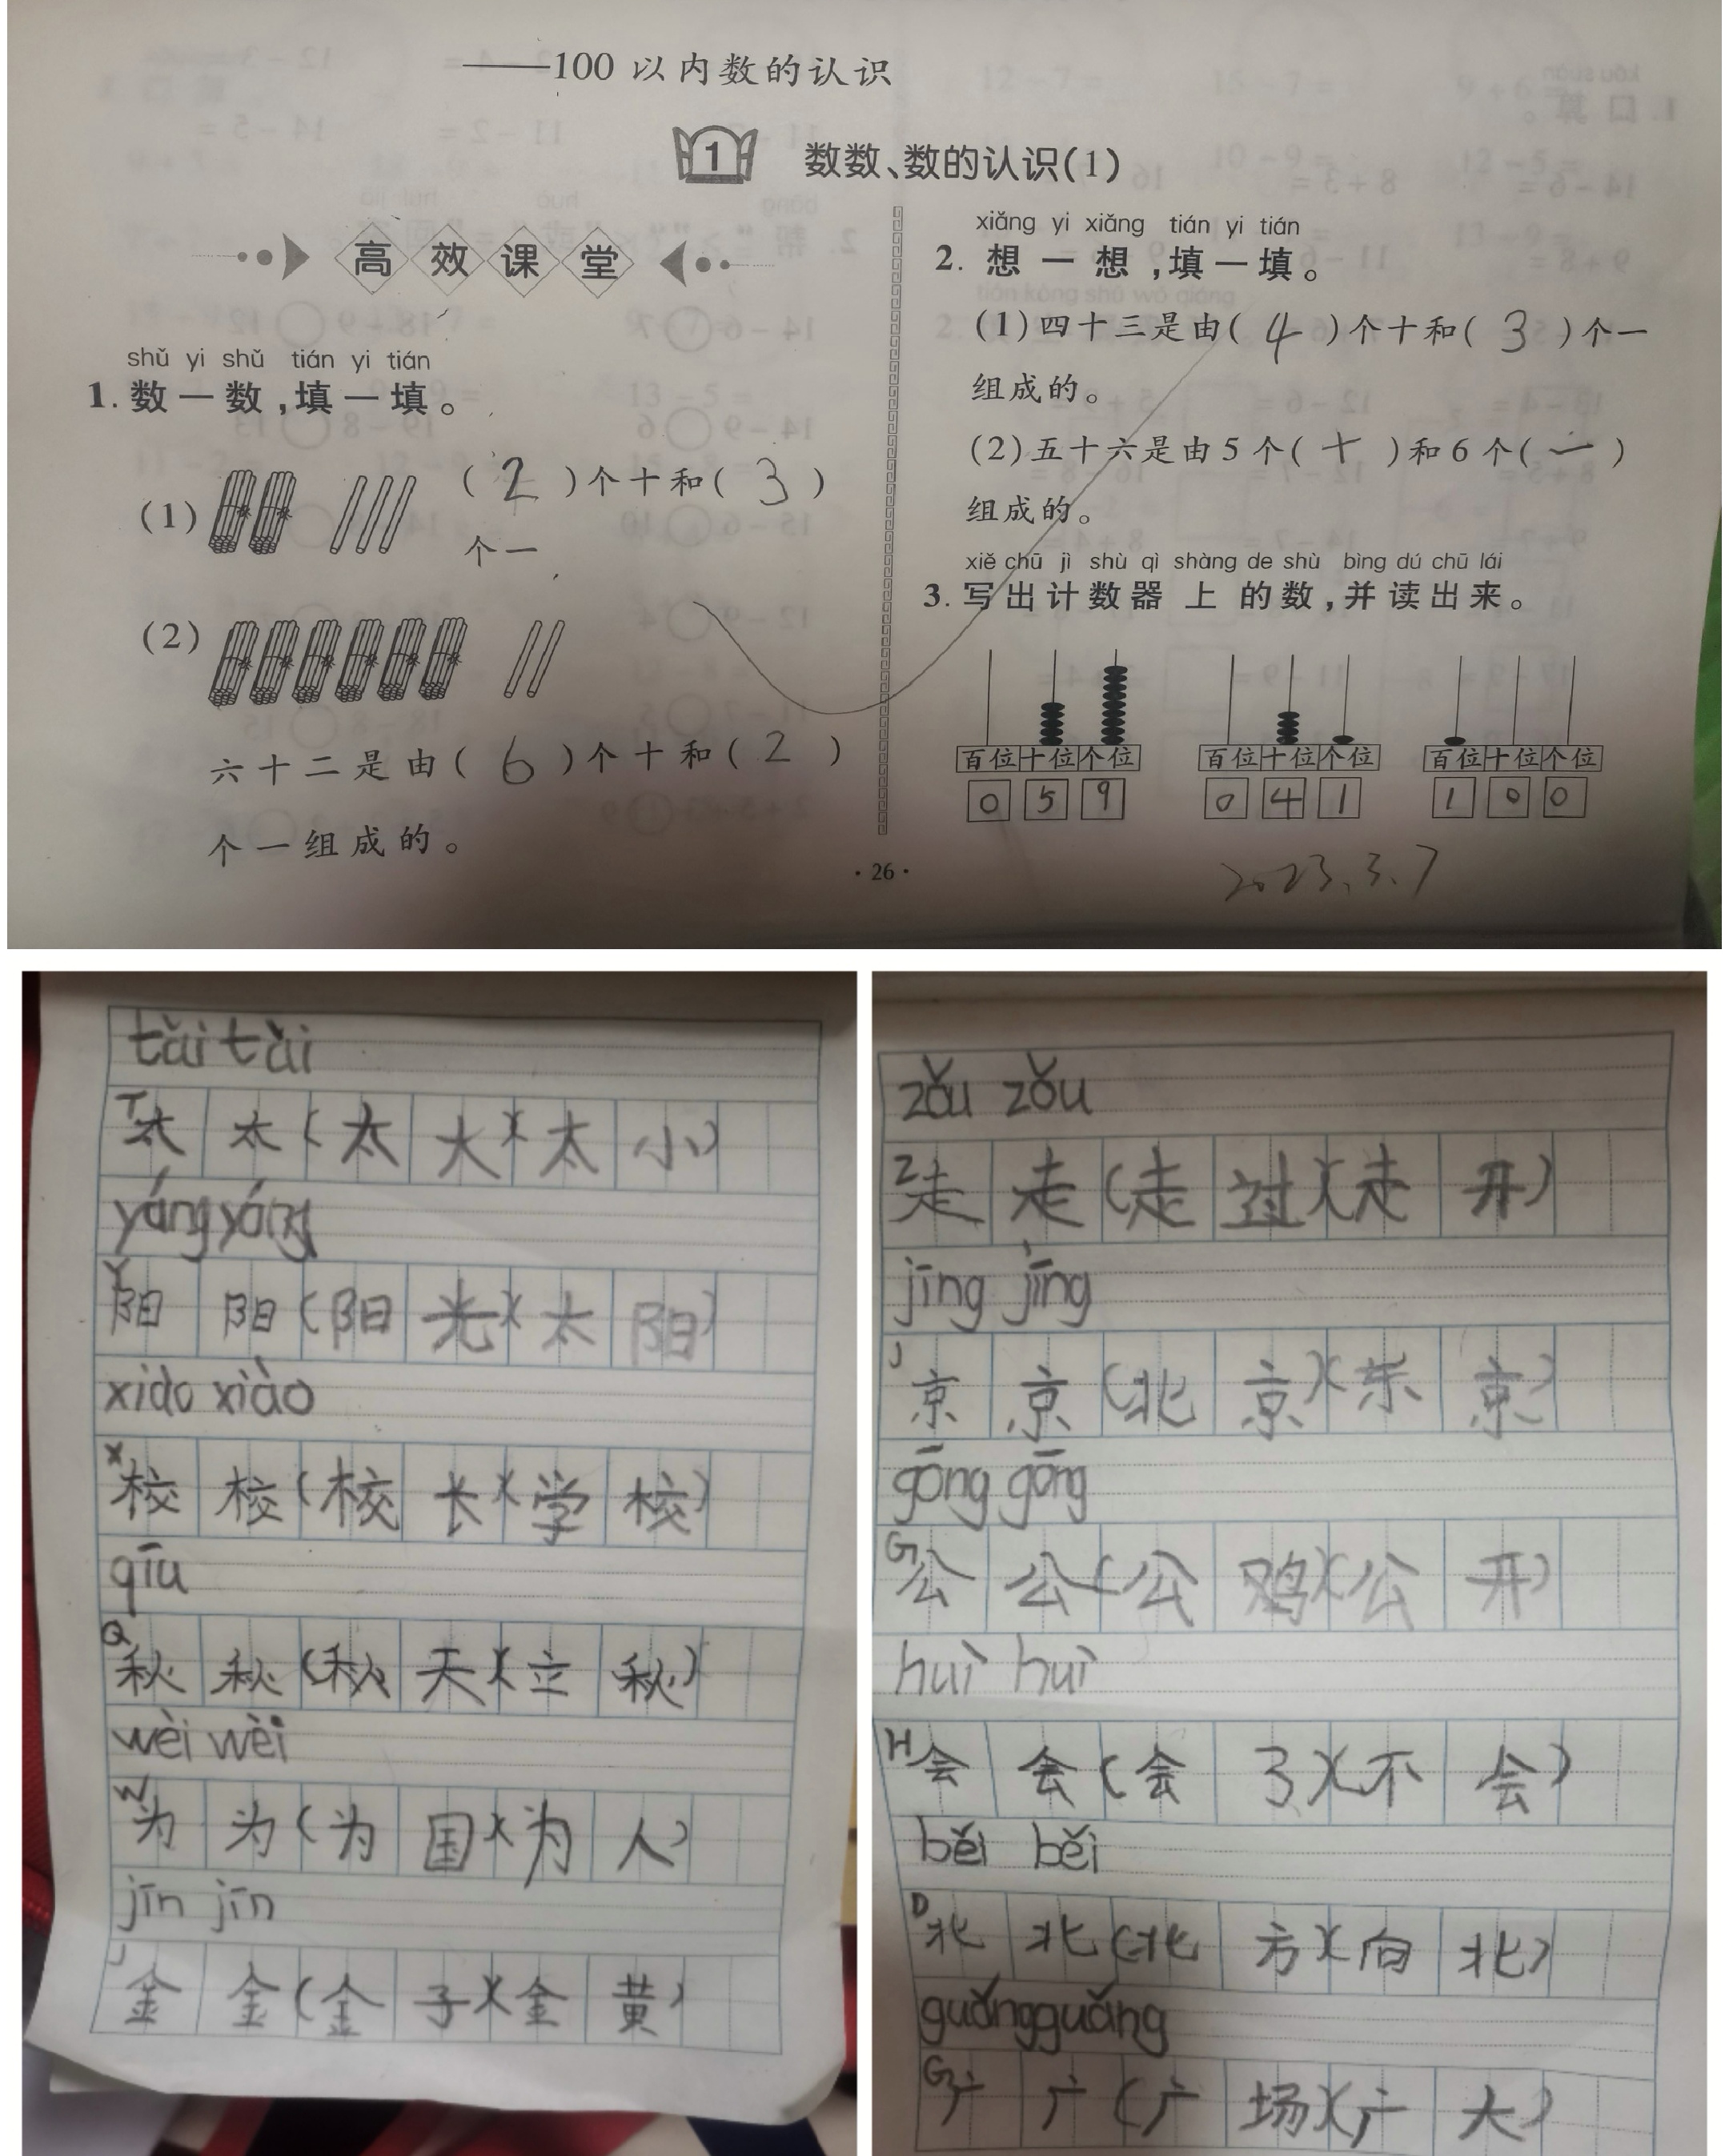 ——100以内数的认识
1 数数、数的认识(1)
高效课堂
shǔ yi shǔ tián yi tián
1. 数一数,填一填。
(1) (2)个十和(3)
个一
(2)
六十二是由(6)个十和(2)
个一组成的。
xiǎng yi xiǎng tián yi tián
2. 想一想,填一填。
(1)四十三是由(4)个十和(3)个一
组成的。
(2)五十六是由5个(十)和6个(一)
组成的。
xiě chū jì shù qì shàng de shù bìng dú chū lái
3. 写出计数器上的数,并读出来。
百位 十位 个位 百位 十位 个位 百位 十位 个位
0 5 9 0 4 1 1 0 0
2023.3.7
·26·
tài tài
T 太 太 (太大)(太小)
yáng yáng
Y 阳 阳 (阳光)(太阳)
xiào xiào
X 校 校 (校长)(学校)
qīu
Q 秋 秋 (秋天)(立秋)
wèi wèi
W 为 为 (为国)(为人)
jīn jīn
J 金 金 (金子)(金黄)
zǒu zǒu
Z 走 走 (走过)(走开)
jīng jīng
J 京 京 (北京)(东京)
gōng gōng
G 公 公 (公鸡)(公开)
huì huì
H 会 会 (会了)(不会)
běi běi
D 北 北 (北方)(向北)
guǎng guǎng
G 广 广 (广场)(广大)